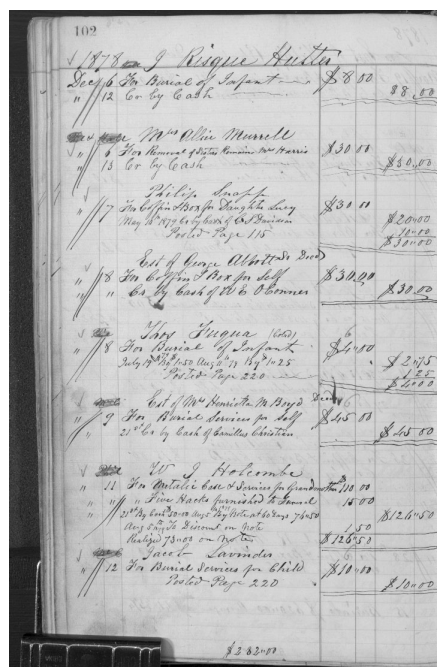 102
1878 J Risque Hutter
Dec 6 For Burial of Infant $8.00
" 12 Cr by Cash $8.00
Mrs Allie Murrell
" 6 For Removal of Sisters Remains Mrs Harris $30.00
" 13 Cr by Cash $30.00
Philip Snapp
" 7 For Coffin & Box for Daughter Lucy $30.00
May 14th 1879 Cr by Cash of C S Davidson $20.00
Posted Page 115 10.00
$30.00
Est of George Abbott Sr Decd
" 8 For Coffin & Box for Self $30.00
" Cr By Cash of W E O'Conner $30.00
Thos Fuqua (Cold)
" 8 For Burial of Infant $4.00
July 19th By 1.50 Aug 11th 79 By 1.25 $2.75
Posted Page 220 1.25
$4.00
Est of Mrs Henrietta M Boyd Decd
" 9 For Burial Services for Self $45.00
" 21st Cr by Cash of Camillus Christian $45.00
W J Holcombe
" 11 For Metalic Case & Services for Grandmother 110.00
" " " Five Hacks furnished to Funeral 15.00
21st By Cash 50.00 Aug 5th By Note at 60 days 76.50 $126.50
Aug 5th To Discount on Note 1.50
Realized 75.00 on Note $126.50
Jacob Lavinder
" 12 For Burial Services for Child $10.00
Posted Page 220 $10.00
$282.00